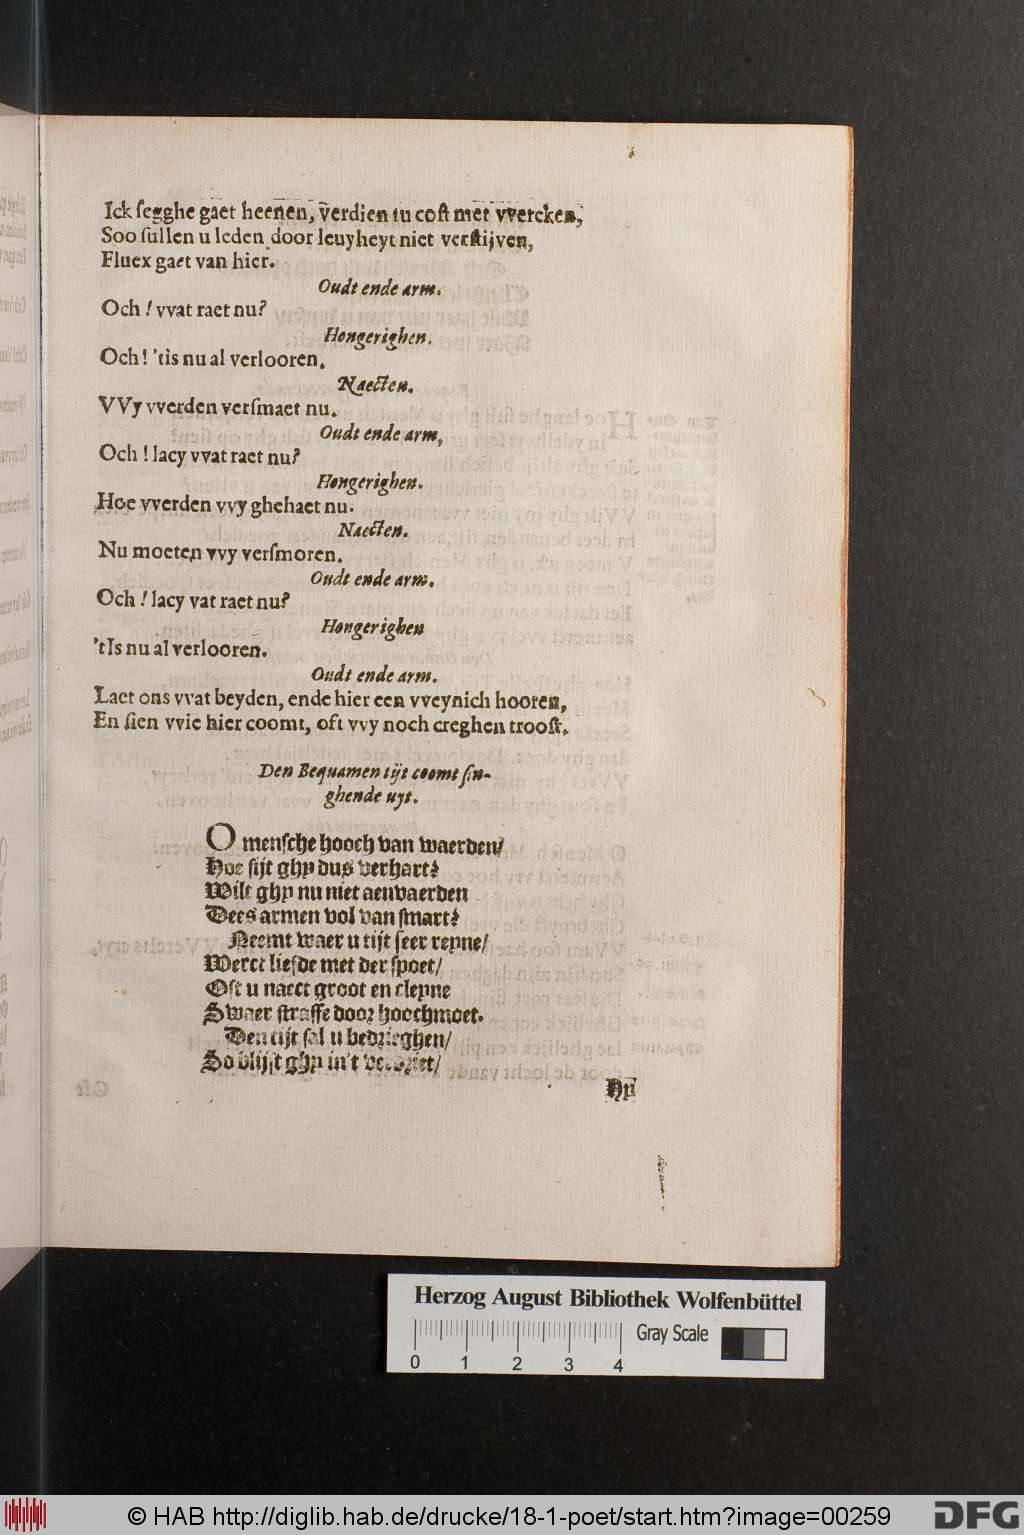 Ick ſegghe gaet heenen, verdien tu coſt met vvercken,
Soo ſullen u leden door leuyheyt niet verſtijven,
Fluex gaet van hier.
Oudt ende arm.
Och! vvat raet nu?
Hongerighen.
Och! 'tis nu al verlooren.
Naecten.
VVy vverden verſmaet nu.
Oudt ende arm,
Och! lacy vvat raet nu?
Hongerighen.
Hoe vverden vvy ghehaet nu.
Naecten.
Nu moeten vvy verſmoren.
Oudt ende arm.
Och! lacy vat raet nu?
Hongerighen
'tIs nu al verlooren.
Oudt ende arm.
Laet ons vvat beyden, ende hier een vveynich hooren,
En ſien vvie hier coomt, oft vvy noch creghen trooſt.
Den Bequamen tijt coomt ſin-
ghende uyt.
O menſche hooch van waerden/
Hoe ſijt ghy dus verhart?
Wilt ghy nu niet aenvaerden
Dees armen vol van ſmart?
Neemt waer u tijt ſeer reyne/
Werct liefde met der ſpoet/
Oft u naect groot en cleyne
Swaer ſtraffe door hoochmoet.
Den tijt ſal u bedrieghen/
So blijft ghy in't verdriet/
Ny
Herzog August Bibliothek Wolfenbüttel
Gray Scale
0 1 2 3 4
© HAB http://diglib.hab.de/drucke/18-1-poet/start.htm?image=00259
DFG